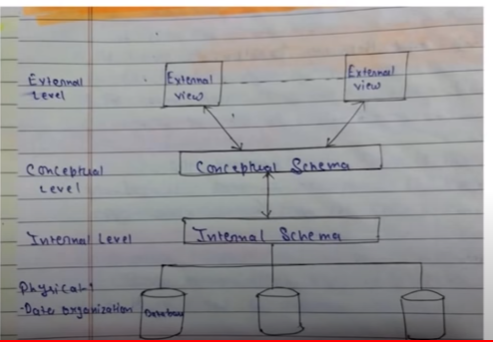 External
Level
External
view
External
view
Conceptual
Level
Conceptual Schema
Internal Level
Internal Schema
Physical
-Data organization
Database